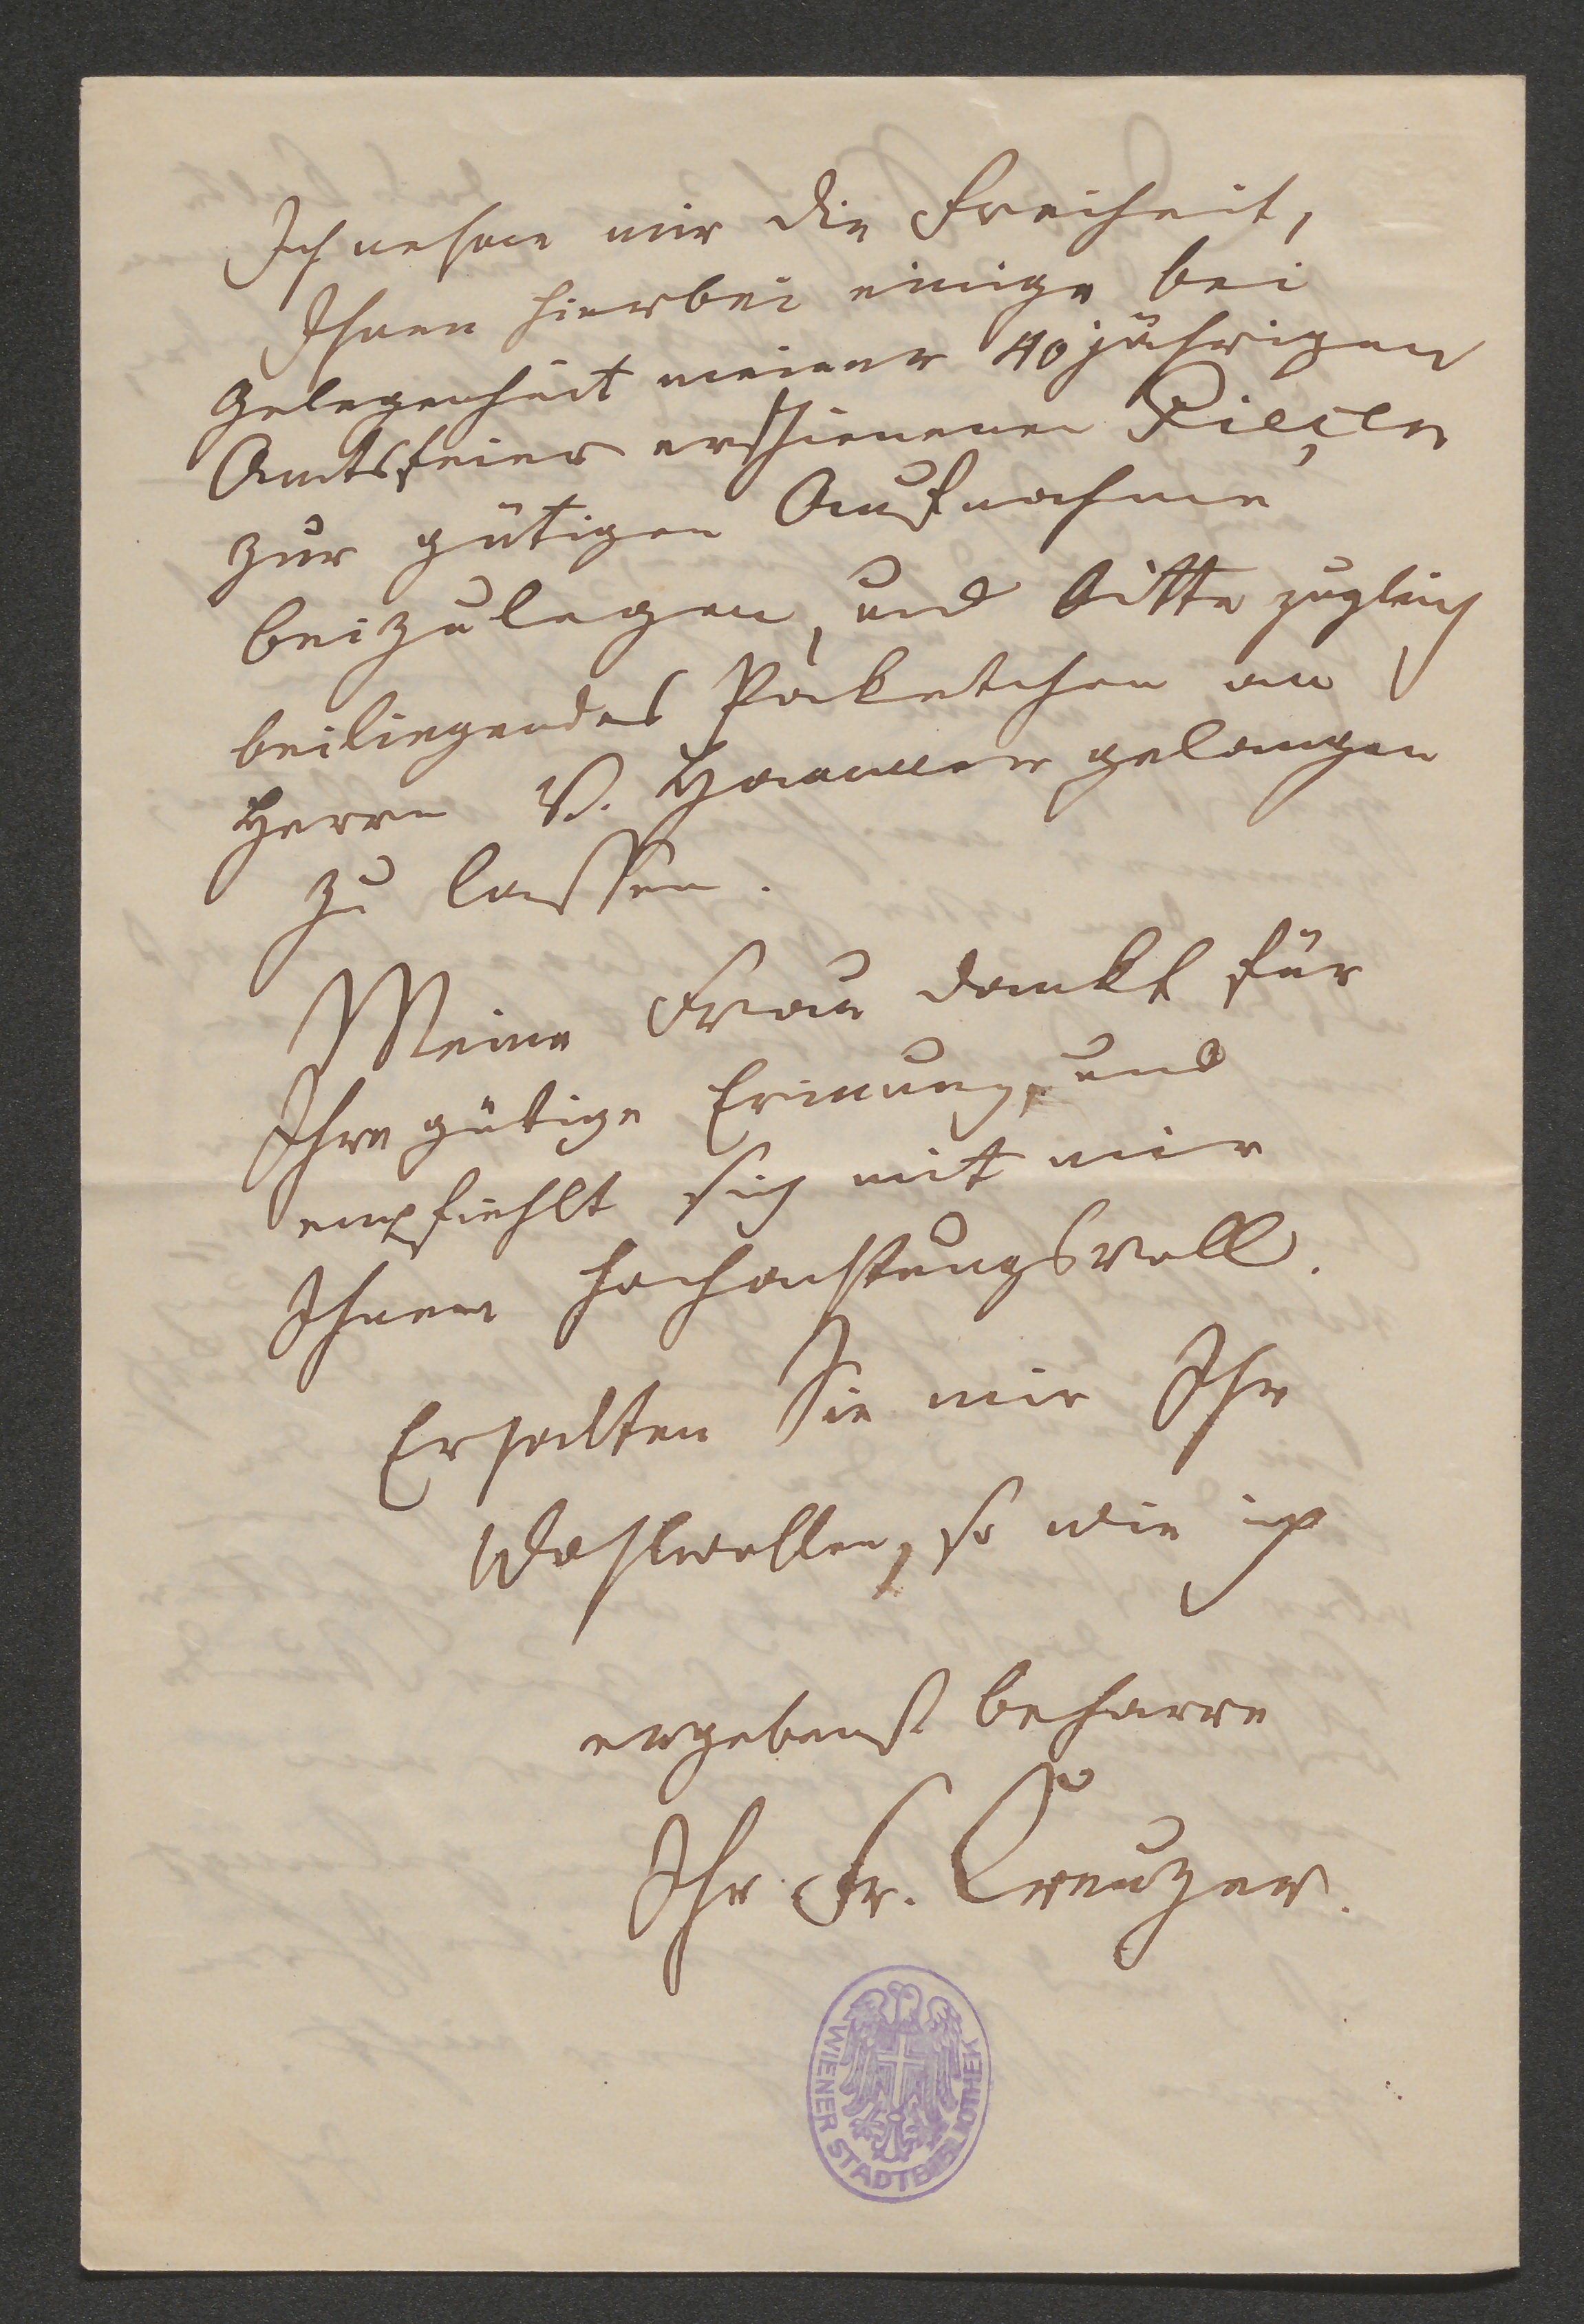 Ich nehme mir die Freiheit,
Ihnen hierbei einige bei
Gelegenheit meiner 40jährigen
Amtsfeier erschienenen Pieçen
zur gütigen Aufnahme
beizulegen, und bitte zugleich
beiliegendes Paketchen an
Herrn V. Hammer gelangen
zu lassen.
Meine Frau dankt für
Ihre gütige Erinnung, und
empfiehlt sich mit mir
Ihnen hochachtungsvoll.
Erhalten Sie mir Ihr
Wohlwollen, so wie ich
ergebenst beharre
Ihr Fr. Creuzer.
WIENER STADTBIBLIOTHEK